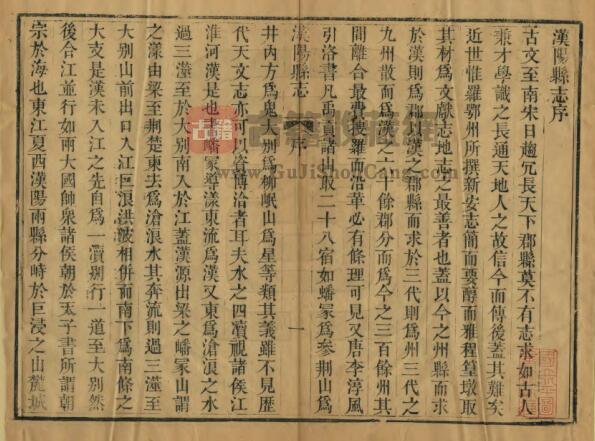 漢陽縣志序
古文至南宋日趨冗長天下郡縣莫不有志求如古人
兼才學識之長通天地人之故信今而傳後蓋其難矣
近世惟羅鄂州所撰新安志簡而要醇而雅程篁墩取
其材爲文獻志地志之最善者也蓋以今之州縣而求
於漢則爲郡以漢之郡縣而求於三代則爲州三代之
九州散而爲漢之六十餘郡分而爲今之三百餘州其
間離合最費搜羅而沿革必有條理可見又唐李淳風
引洛書凡禹貢諸山取二十八宿如嶓冢爲參荆山爲
漢陽縣志
序
一
井內方爲鬼大別爲柳岷山爲星等類其義雖不見歴
代天文志亦可以資博洽者耳夫水之四瀆視諸侯江
淮河漢是也嶓冢導漾東流爲漢又東爲滄浪之水
過三澨至於大別南入於江蓋漢源出梁之嶓冢山謂
之漾由梁至荆楚東去爲滄浪水其奔流則過三澨至
大別山前出口入江巨浪洪波相併而南下爲南條之
大支是漢未入江之先自爲一瀆別行一道至大別然
後合江並行如兩大國帥衆諸侯朝於天子書所謂朝
宗於海也東江夏西漢陽兩縣分峙於巨浸之山麓城
古籍
古籍收藏網
www.GuJiShouCang.com